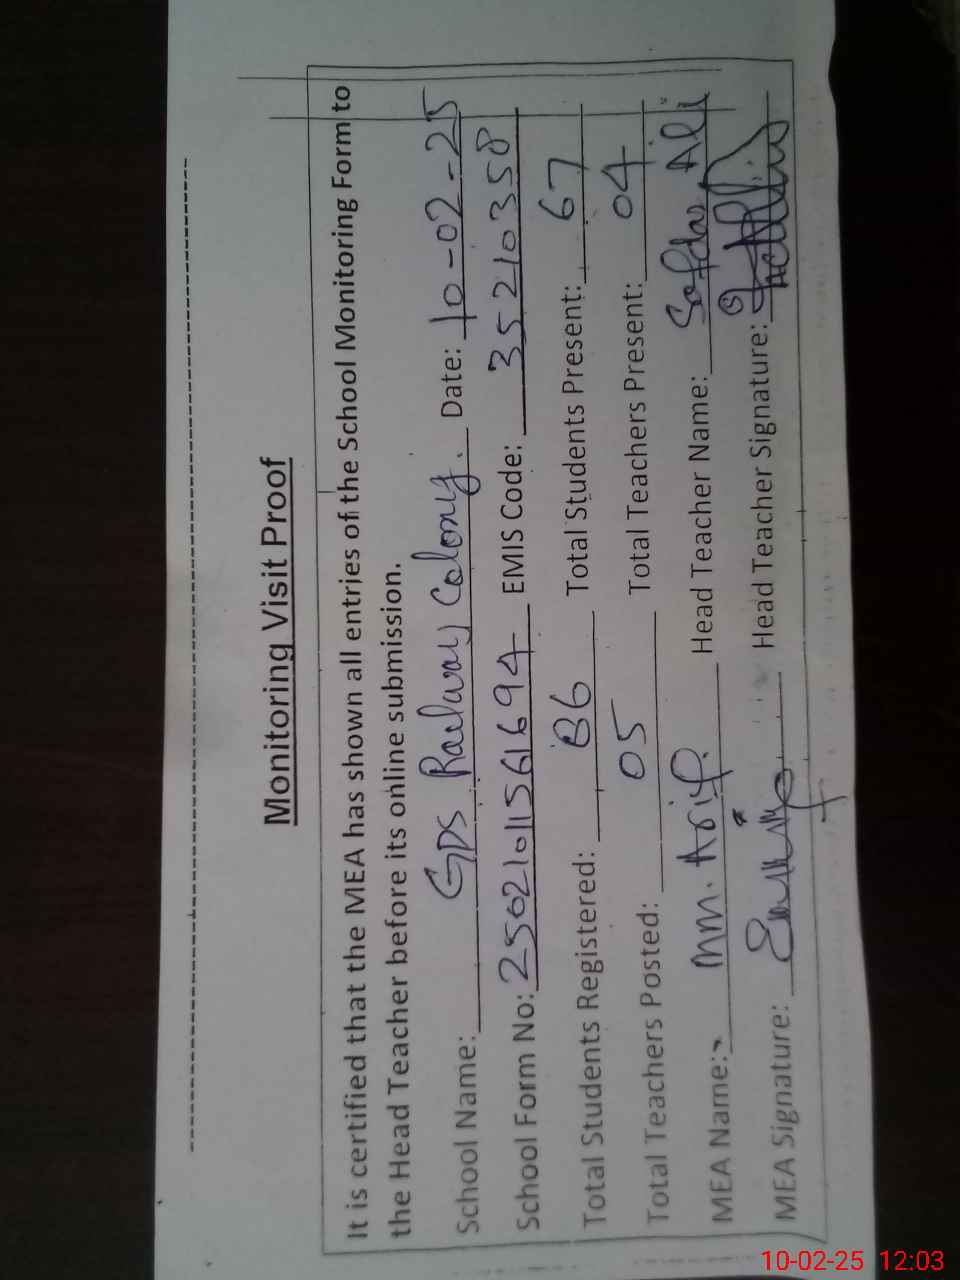 Monitoring Visit Proof
It is certified that the MEA has shown all entries of the School Monitoring Form to
the Head Teacher before its online submission.
School Name: GPS Railway Colony. Date: 10-02-25
School Form No: 25021011561694 EMIS Code: 35210358
Total Students Registered: 86 Total Students Present: 67
Total Teachers Posted: 05 Total Teachers Present: 04
MEA Name: Mm. Arif Head Teacher Name: Safdar Ali
MEA Signature: Head Teacher Signature:
10-02-25 12:03